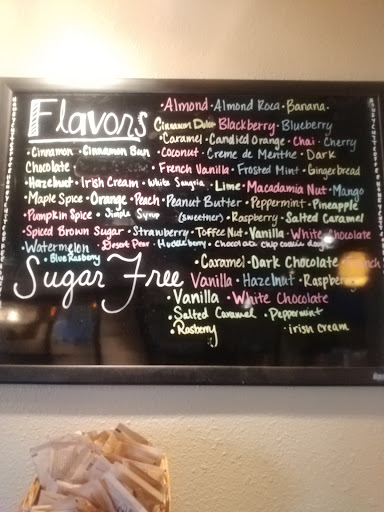 Flavors
·Almond ·Almond Roca ·Banana
Cinnamon Dulce Blackberry ·Blueberry
·Caramel ·Candied Orange ·Chai ·Cherry
·Cinnamon ·Cinnamon Bun ·Coconut ·Creme de Menthe ·Dark
Chocolate French Vanilla ·Frosted Mint ·Gingerbread
Hazelnut ·Irish Cream ·White Sangria ·Lime ·Macadamia Nut ·Mango
Maple Spice ·Orange ·Peach ·Peanut Butter ·Peppermint ·Pineapple
Pumpkin Spice ·Simple Syrup (sweetner) ·Raspberry ·Salted Caramel
Spiced Brown Sugar ·Strawberry ·Toffee Nut ·Vanilla ·White Chocolate
Watermelon ·Desert Pear ·Huckleberry ·Chocolate chip cookie dough
·Blue Rasberry
Sugar Free
·Caramel ·Dark Chocolate ·French
Vanilla ·Hazelnut ·Raspberry
·Vanilla ·White Chocolate
·Salted Caramel ·Peppermint
·Rasberry ·irish cream